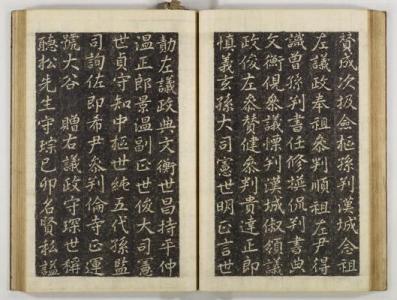 贊成次扱僉樞孫判漢城念祖
左議政奉祖叅判順祖左尹得
識曾孫判書任修撰侃判書典
文衡俔叅議慓判漢城俶領議
政俊左叅贊健叅判貴達正郎
慎義玄孫大司憲世明正言世
勣左議政典文衡世昌持平仲
温正郎景温副正世俊大司憲
世貞守知中樞世純五代孫監
司詢佐郎希尹叅判倫寺正運
號大谷 贈右議政守琛世稱
聽松先生守琮己卯名賢私諡